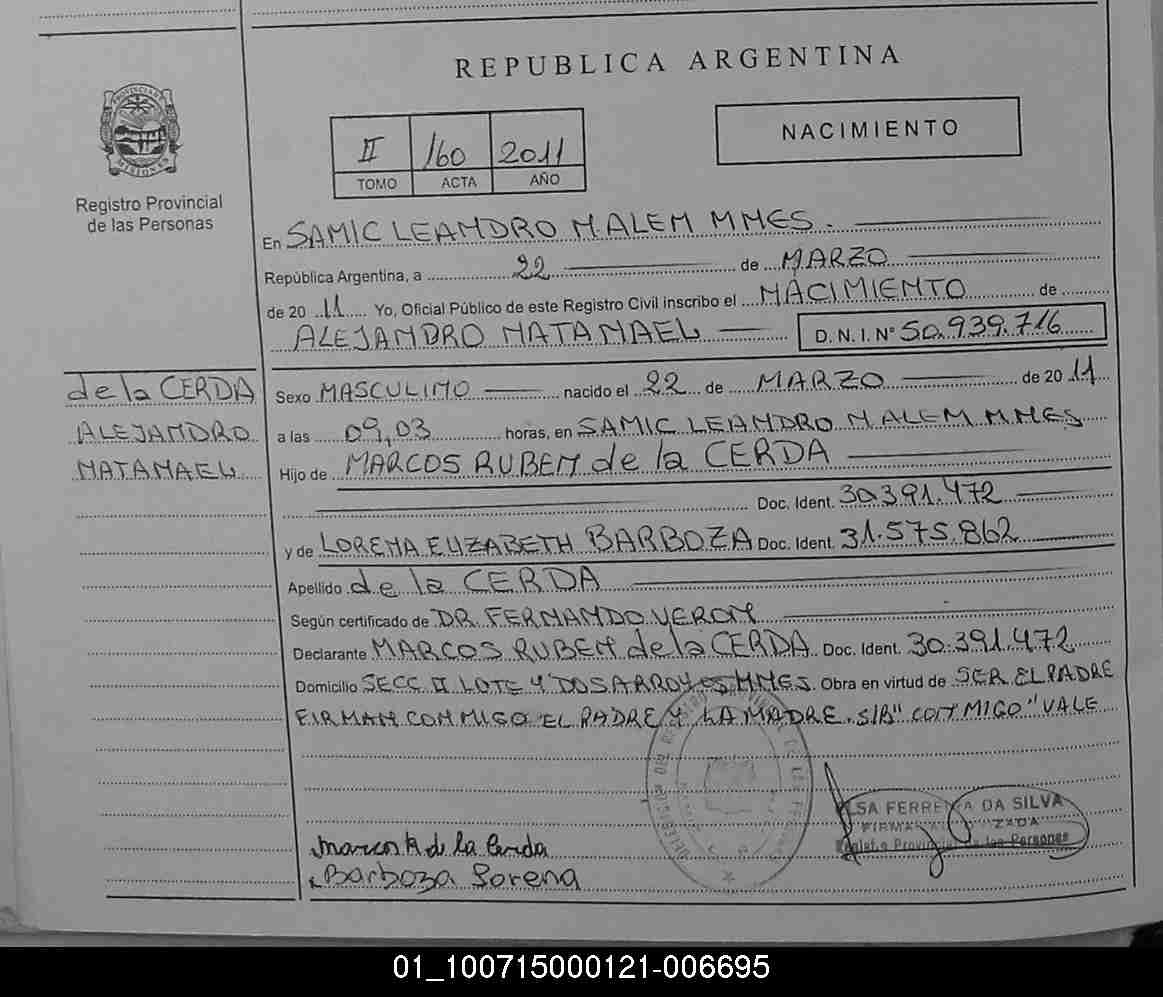 REPUBLICA ARGENTINA
PROVINCIA DE MISIONES
Registro Provincial
de las Personas
II 160 2011
TOMO ACTA AÑO
NACIMIENTO
En SAMIC LEANDRO N. ALEM MNES.
República Argentina, a 22 de MARZO
de 20 11 Yo, Oficial Público de este Registro Civil inscribo el NACIMIENTO de
ALEJANDRO NATANAEL D.N.I.N° 50.939.716
de la CERDA
ALEJANDRO
NATANAEL
Sexo MASCULINO nacido el 22 de MARZO de 20 11
a las 09,03 horas, en SAMIC LEANDRO N ALEM MNES
Hijo de MARCOS RUBEN de la CERDA
Doc. Ident. 30.391.472
y de LORENA ELIZABETH BARBOZA Doc. Ident. 31.575.862
Apellido de la CERDA
Según certificado de DR. FERNANDO VERON
Declarante MARCOS RUBEN de la CERDA Doc. Ident. 30.391.472
Domicilio SECC II LOTE 4 DOS ARROYOS MNES. Obra en virtud de SER EL PADRE
FIRMAN CONMIGO EL PADRE Y LA MADRE. S/B "CONMIGO" VALE
ELSA FERREYRA DA SILVA
FIRMA AUTORIZADA
Registro Provincial de las Personas
Marcos R de la Cerda
Barboza Lorena
01_100715000121-006695